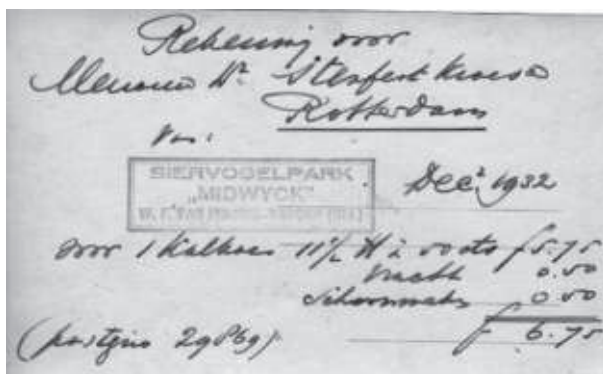 Rekening voor
Mevrouw Dr. Stenfert Kroese
Rotterdam
van:
SIERVOGELPARK
„MIDWYCK”
Dec. 1932
voor 1 Kalkoen 11½ ℔ à 50 cts f 5.75
Vracht 0.50
Schoonmaken 0.50
f 6.75
(postgiro 29869)